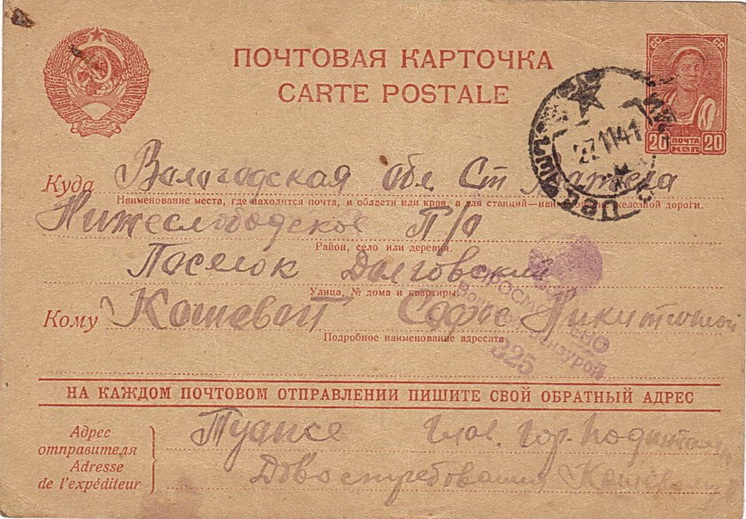 ПОЧТОВАЯ КАРТОЧКА
CARTE POSTALE
ПОЧТА
20 КОП 20
27 11 41
Куда Вологодская обл Ст
Наименование места, где находится почта, и области или края, а для станций—наименование железной дороги.
Нижеслободское П/о
Район, село или деревня.
Поселок Долговский
Улица, № дома и квартиры.
Кому Кошевой Софье Никитичной
Подробное наименование адресата.
ПРОСМОТРЕНО
Военной Цензурой
325
НА КАЖДОМ ПОЧТОВОМ ОТПРАВЛЕНИИ ПИШИТЕ СВОЙ ОБРАТНЫЙ АДРЕС
Адрес
отправителя
Adresse
de l'expéditeur
Туапсе Глав. гор.
Довостребования